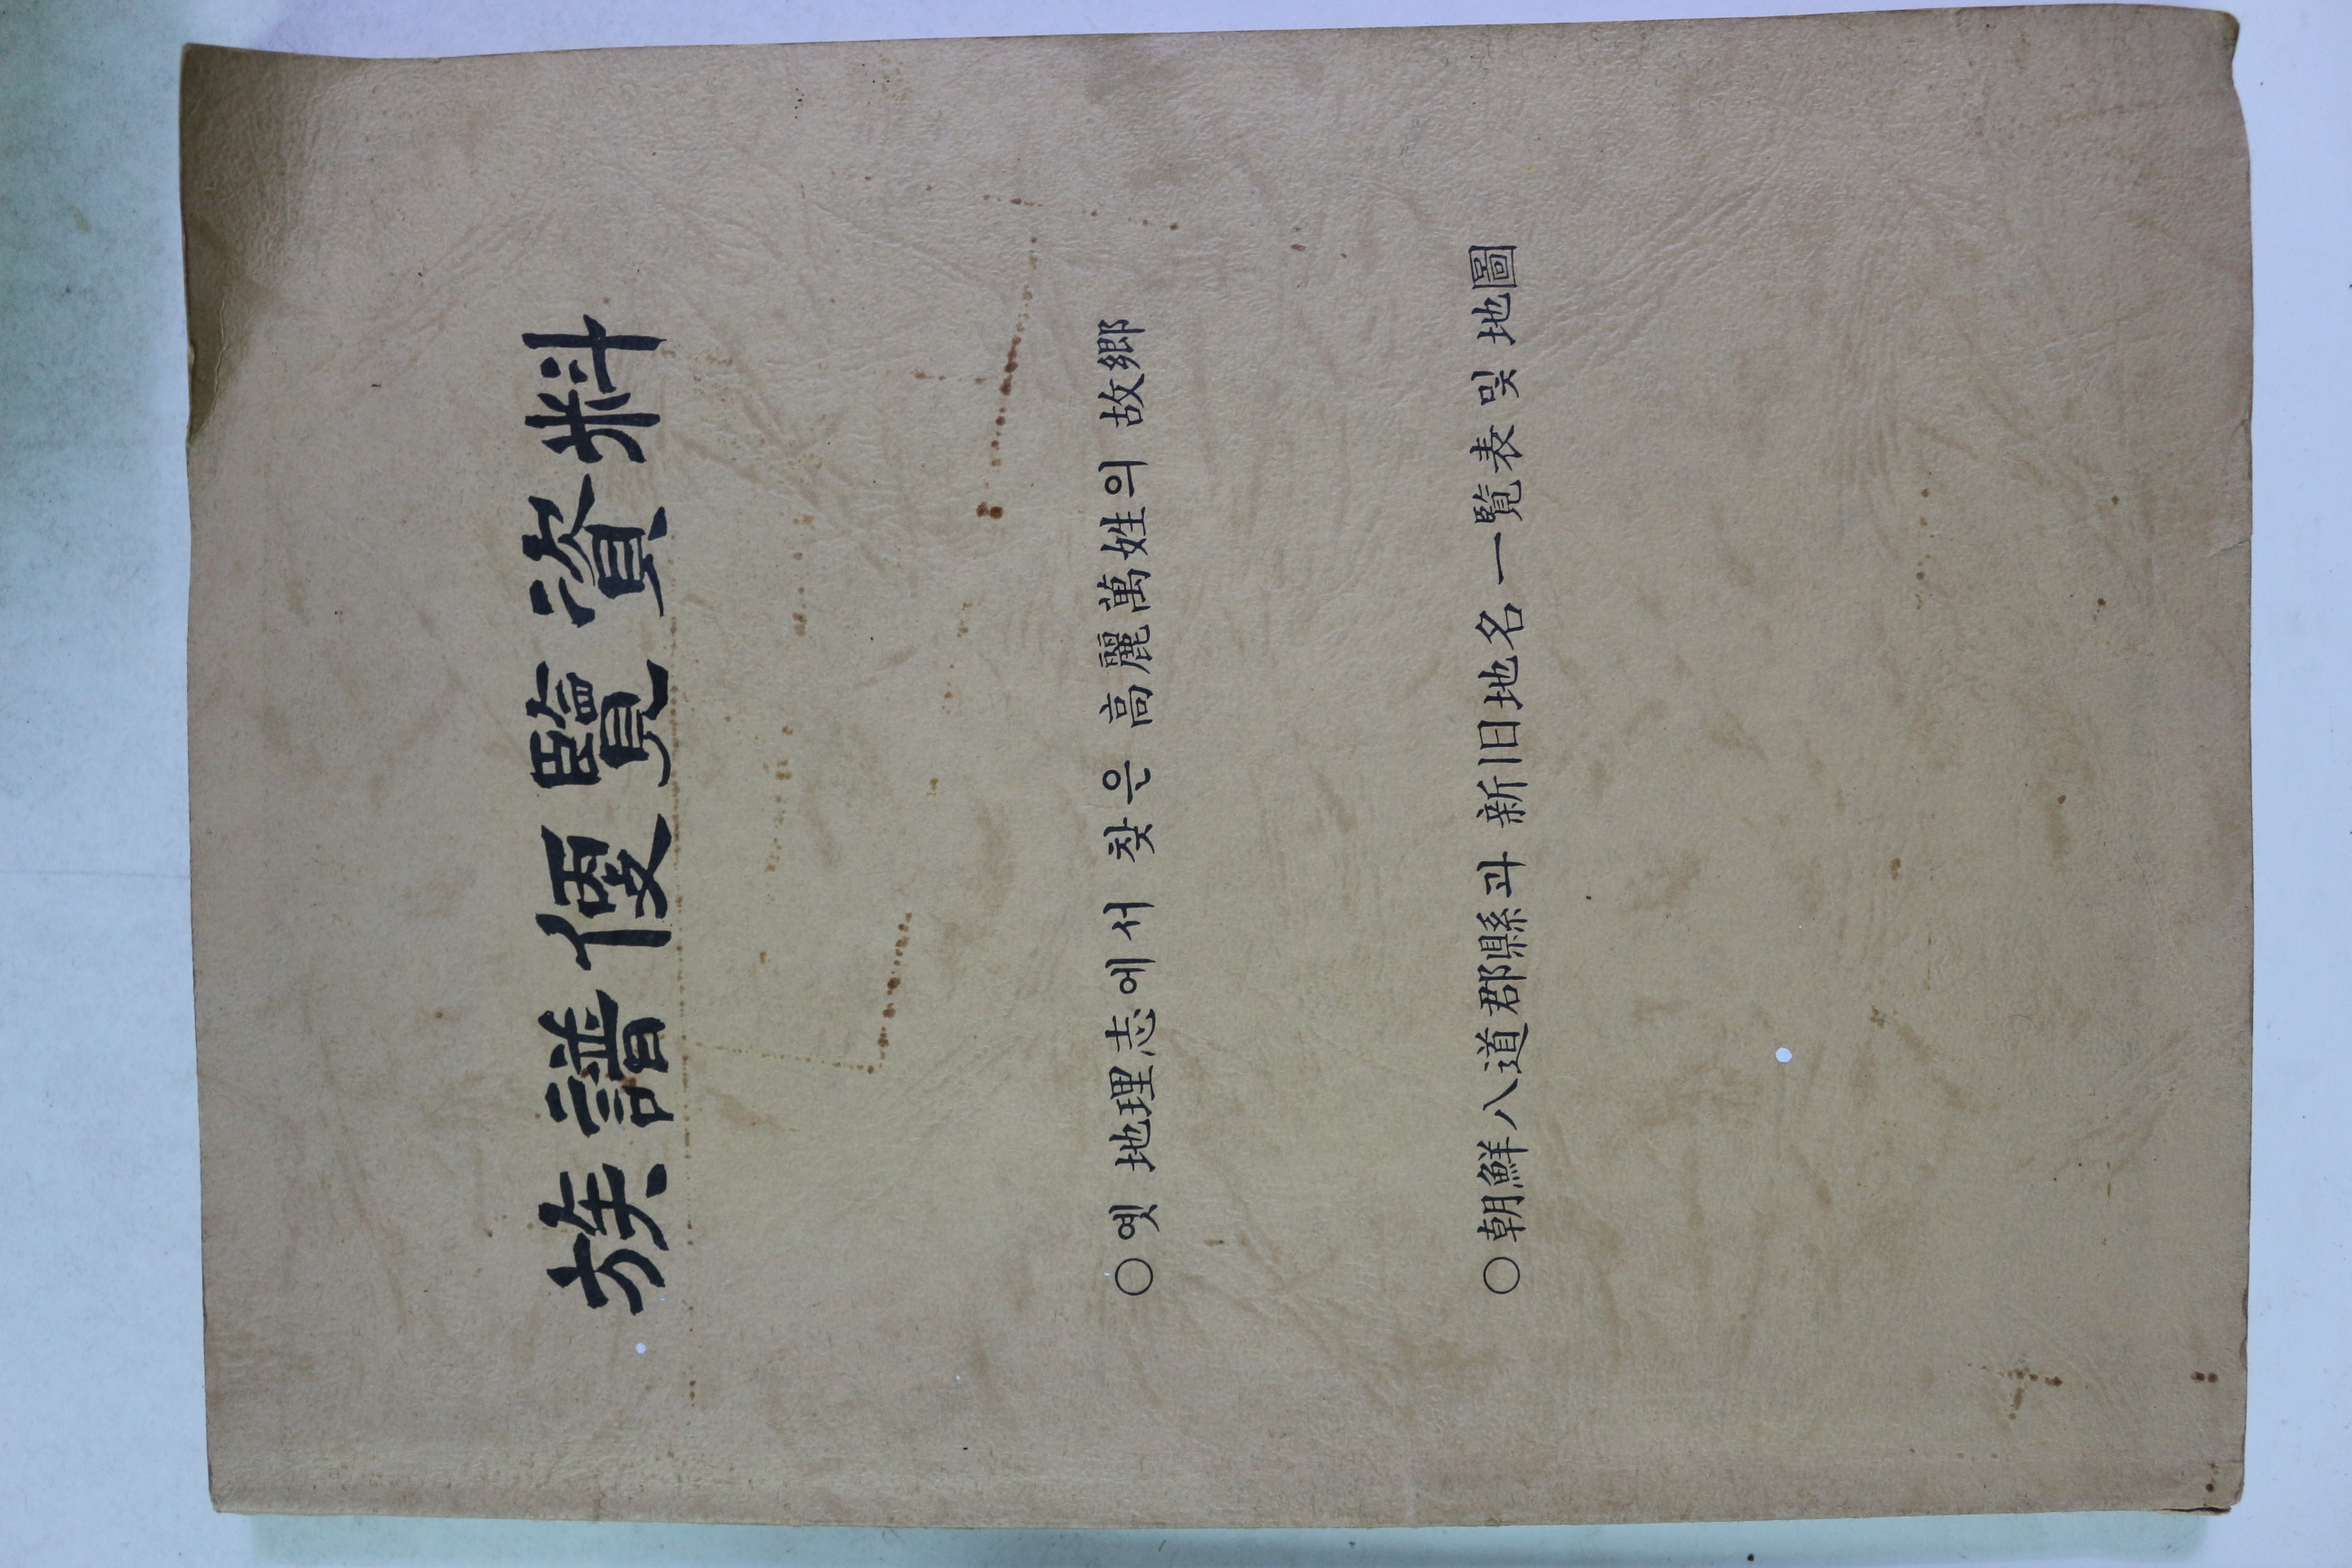 族譜便覽資料
○옛 地理志에서 찾은 高麗萬姓의 故郷
○朝鮮八道郡縣과 新旧地名一覧表및 地圖